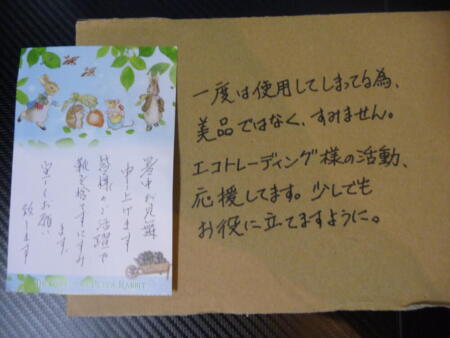 暑中お見舞
申し上げます
皆様のご活躍で
靴を捨てずにすみ
ます。
宜しくお願い
致します
PETER RABBIT
一度は使用してしまってる為、
美品ではなく、すみません。
エコトレーディング様の活動、
応援してます。少しでも
お役に立てますように。